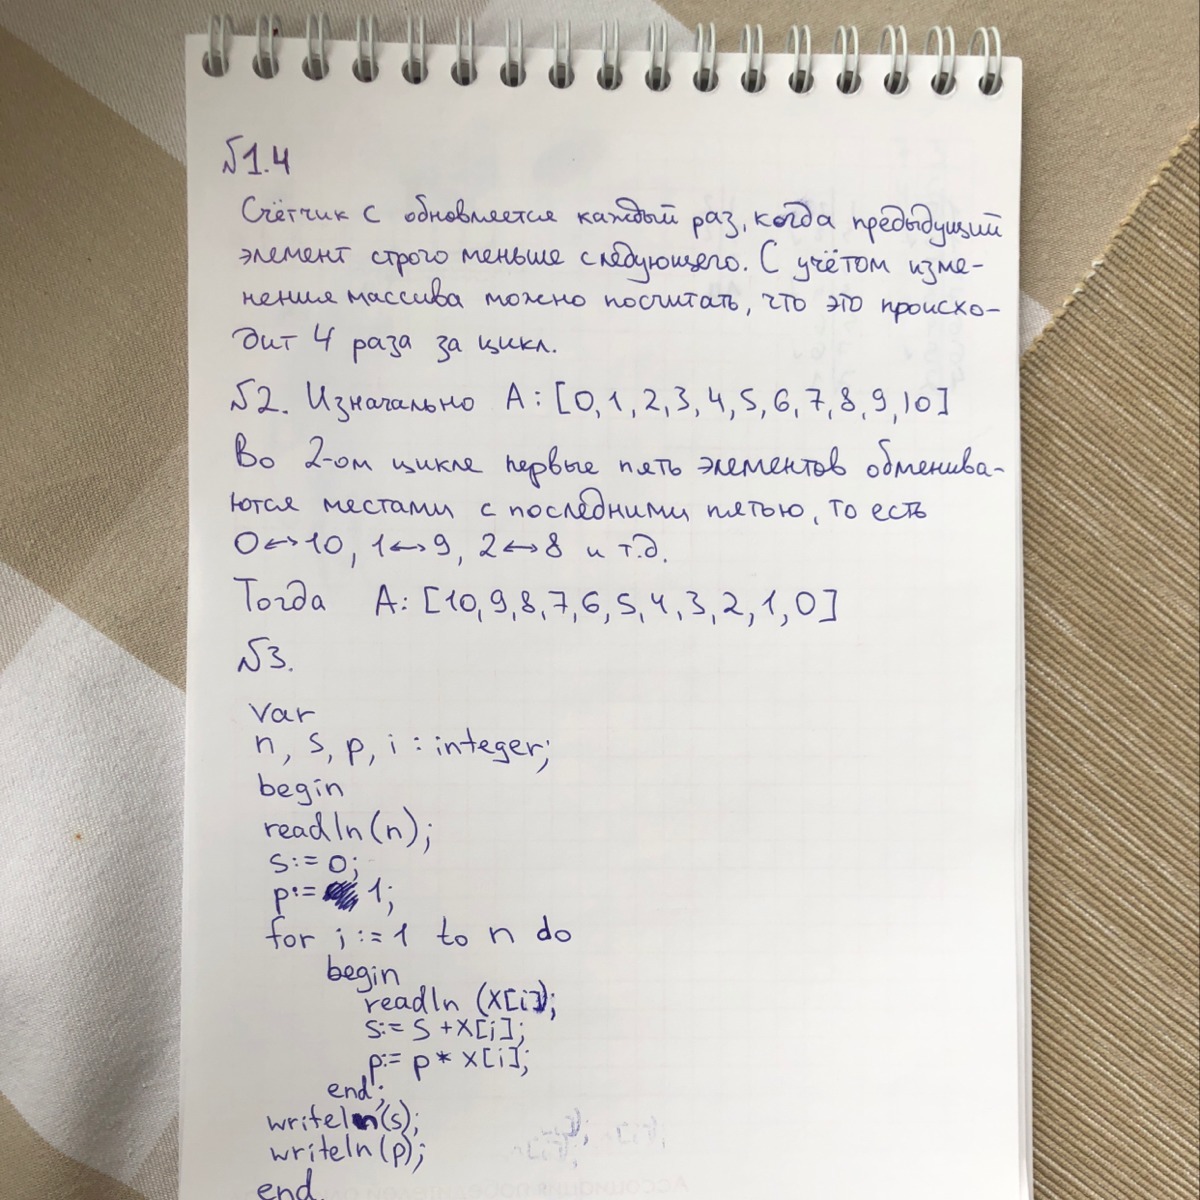 №1.4
Счётчик с обновляется каждый раз, когда предыдущий
элемент строго меньше следующего. С учётом изме-
нения массива можно посчитать, что это происхо-
дит 4 раза за цикл.
№2. Изначально A: [0,1,2,3,4,5,6,7,8,9,10]
Во 2-ом цикле первые пять элементов обменива-
ются местами с последними пятью, то есть
0↔10, 1↔9, 2↔8 и т.д.
Тогда A: [10,9,8,7,6,5,4,3,2,1,0]
№3.
var
n, s, p, i : integer;
begin
readln(n);
s:= 0;
p:= 1;
for i:=1 to n do
begin
readln (x[i]);
s:= s + x[i];
p:= p * x[i];
end;
writeln(s);
writeln(p);
end.